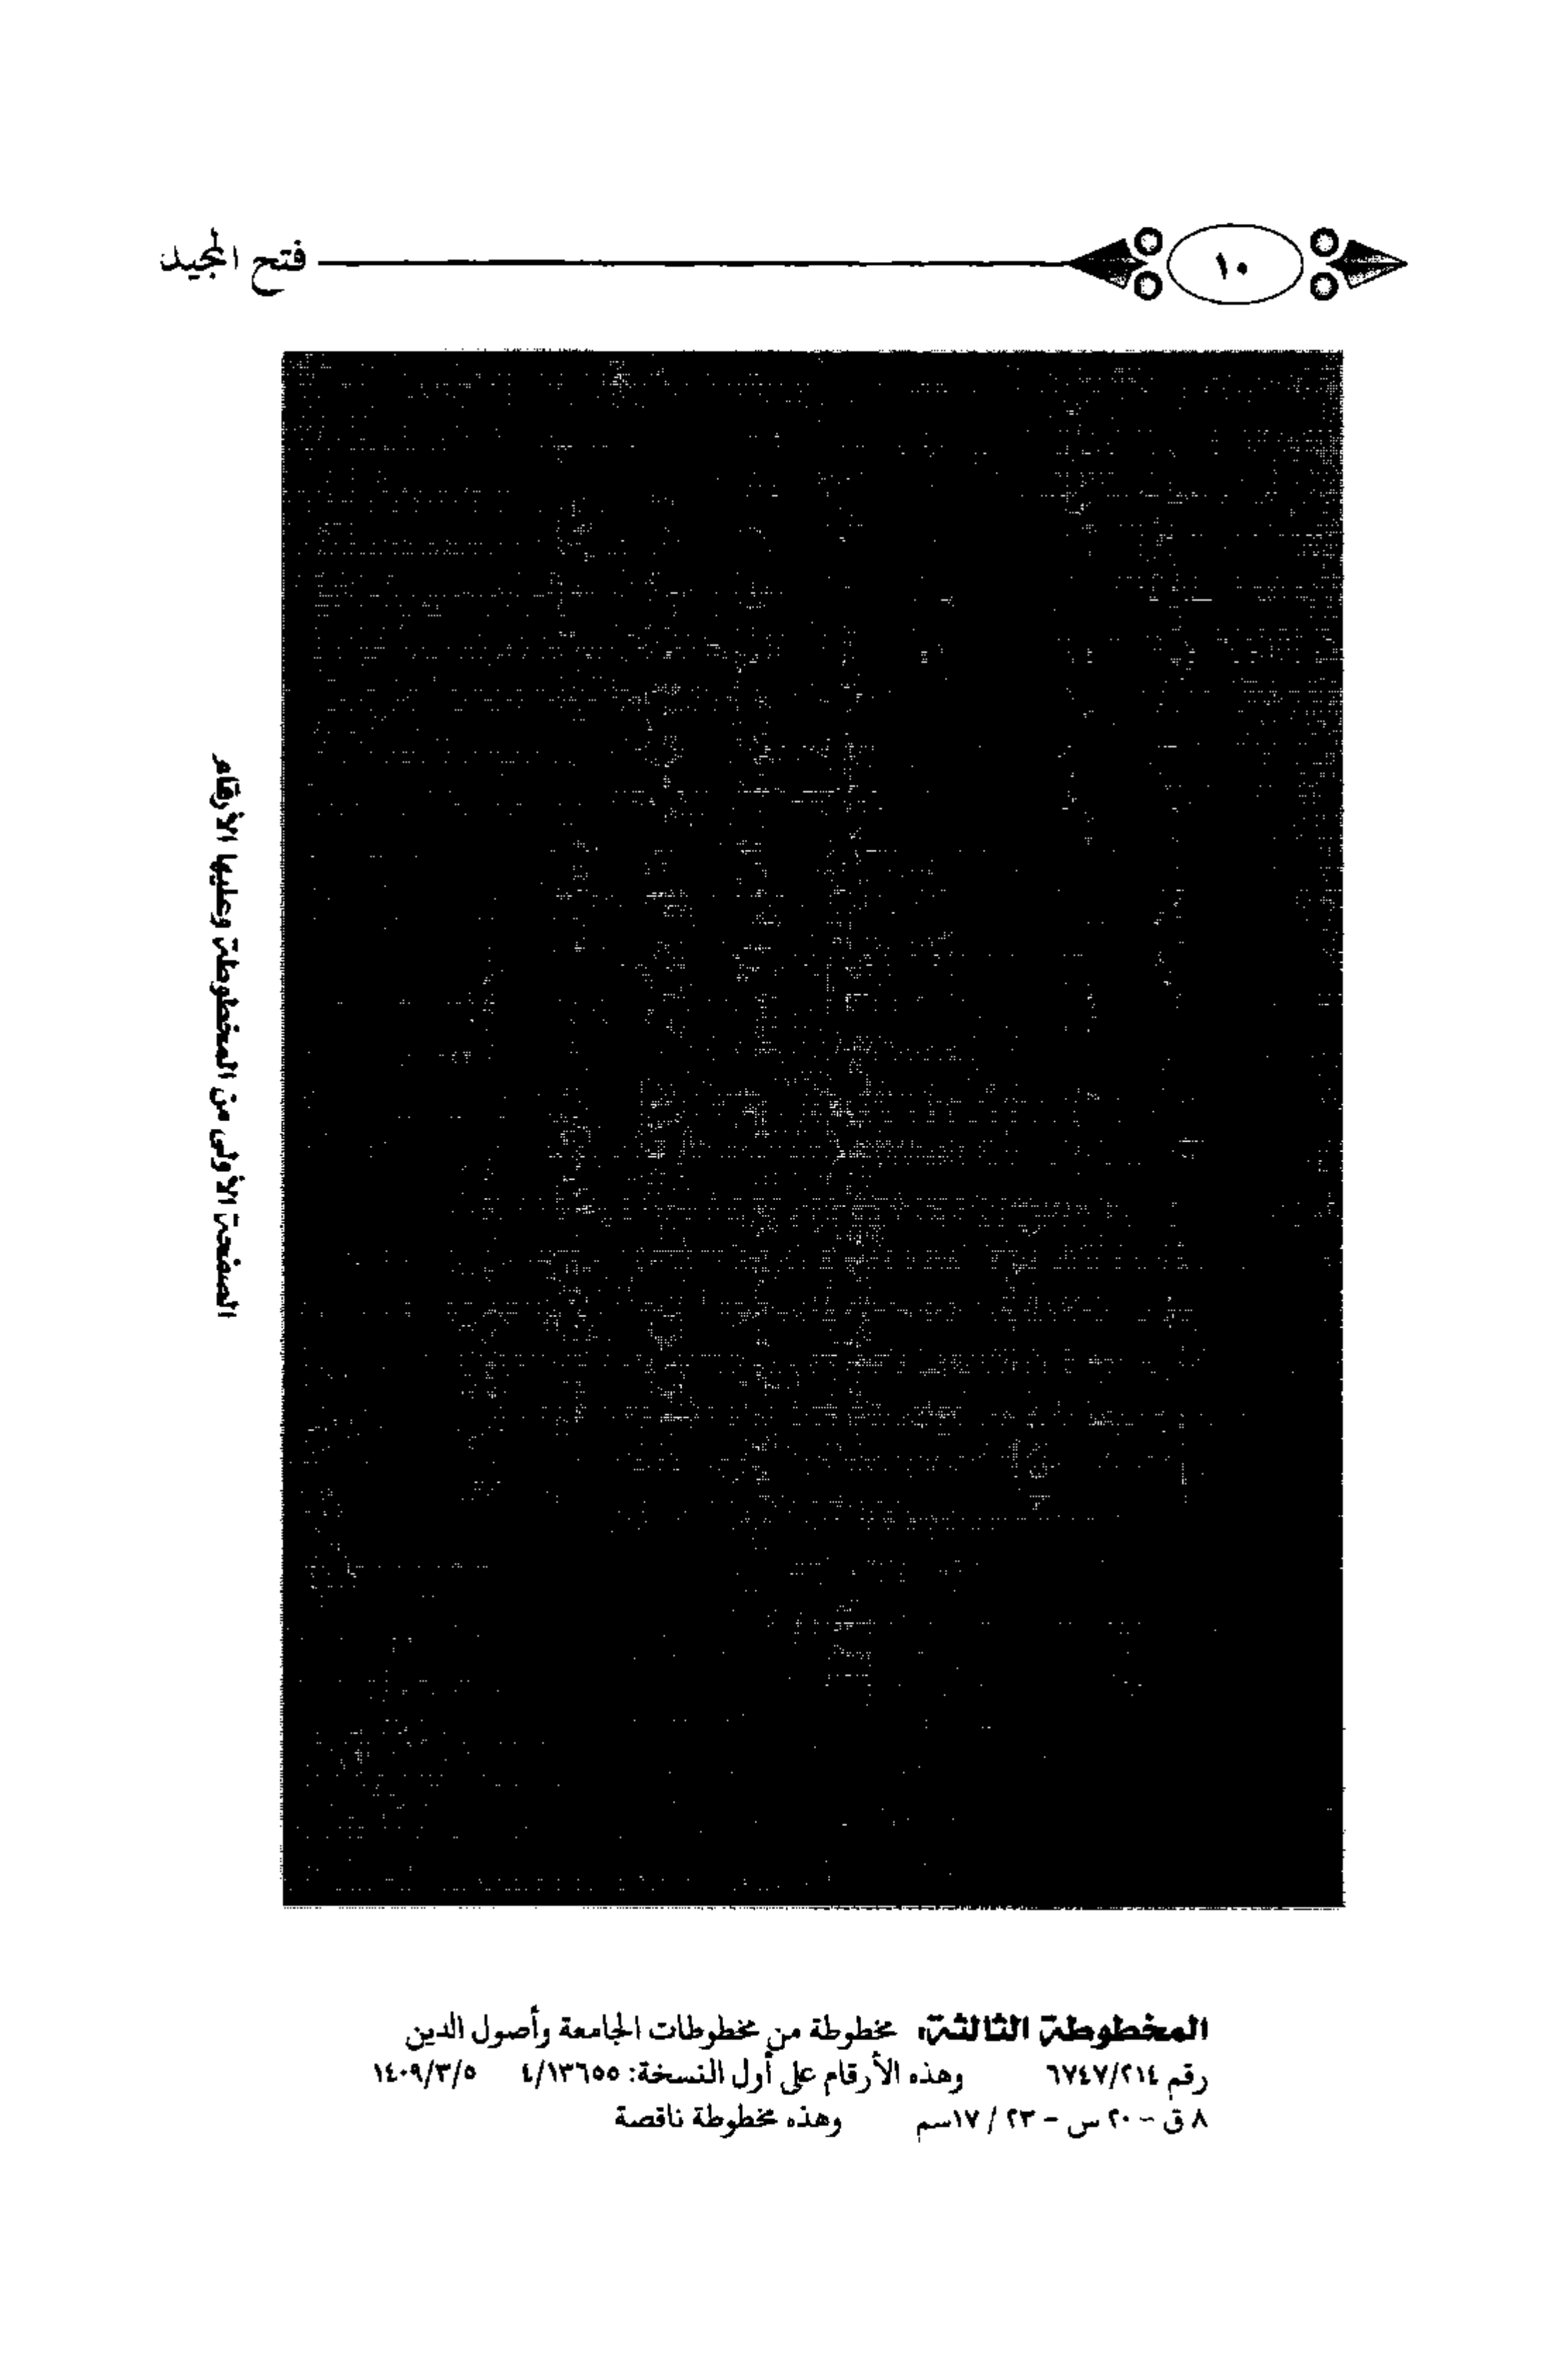 ١٠
فتح المجيد
الصفحة الأولى من المخطوطة وعليها الأرقام
المخطوطة الثالثة: مخطوطة من مخطوطات الجامعة وأصول الدين
رقم ٦٧٤٧/٢١٤ وهذه الأرقام على أول النسخة: ٤/١٣٦٥٥ ١٤٠٩/٣/٥
٨ ق - ٢٠ س - ٢٣ / ١٧سم وهذه مخطوطة ناقصة